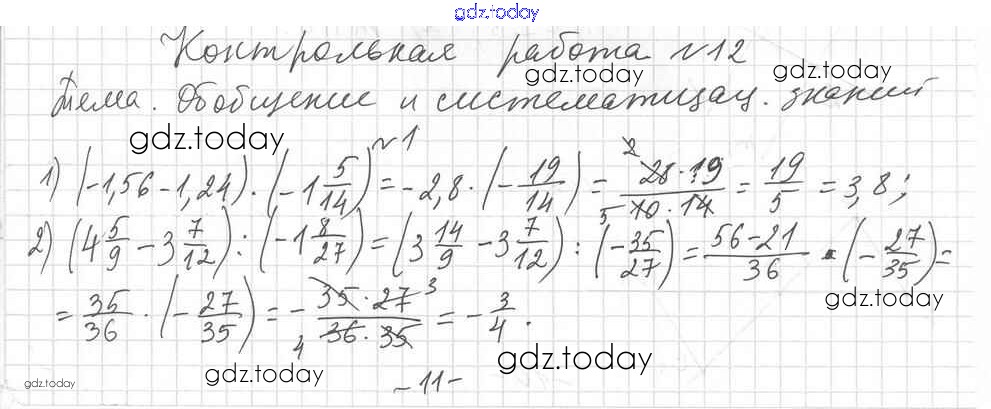 gdz.today
Контрольная работа №12
gdz.today
gdz.today
Тема. Обобщение и систематизац. знаний
gdz.today
№1
1) (-1,56-1,24)·(-1 5/14) = -2,8·(-19/14) = 28·19/10·14 = 19/5 = 3,8;
2) (4 5/9 - 3 7/12) : (-1 8/27) = (3 14/9 - 3 7/12) : (-35/27) = 56-21/36 · (-27/35) =
= 35/36 · (-27/35) = - 35·27/36·35 = - 3/4.
gdz.today
gdz.today
gdz.today
gdz.today
-11-